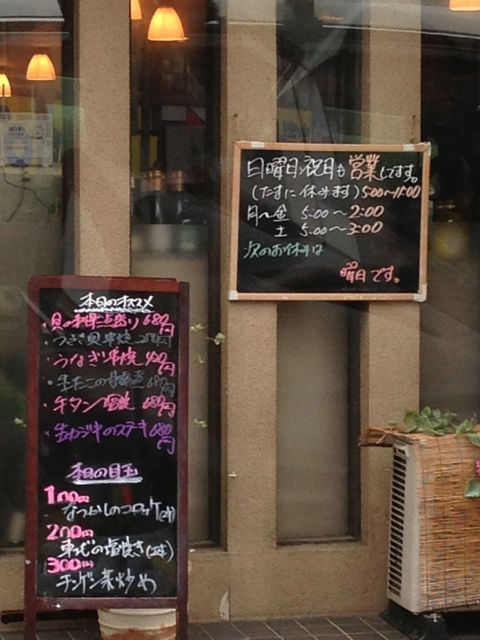 日曜日、祝日も営業してます。
(たまに休みます) 5:00〜11:00
月〜金 5:00〜2:00
土 5:00〜3:00
次のお休みは
曜日です。
本日のオススメ
・貝の 盛り 680円
・うなぎ串焼 400円
・生たこの 680円
・牛タン塩焼 680円
・ のステーキ 680円
本日の目玉
100円
なつかしのコロッケ
200円
の塩焼き
300円
チンゲン菜炒め